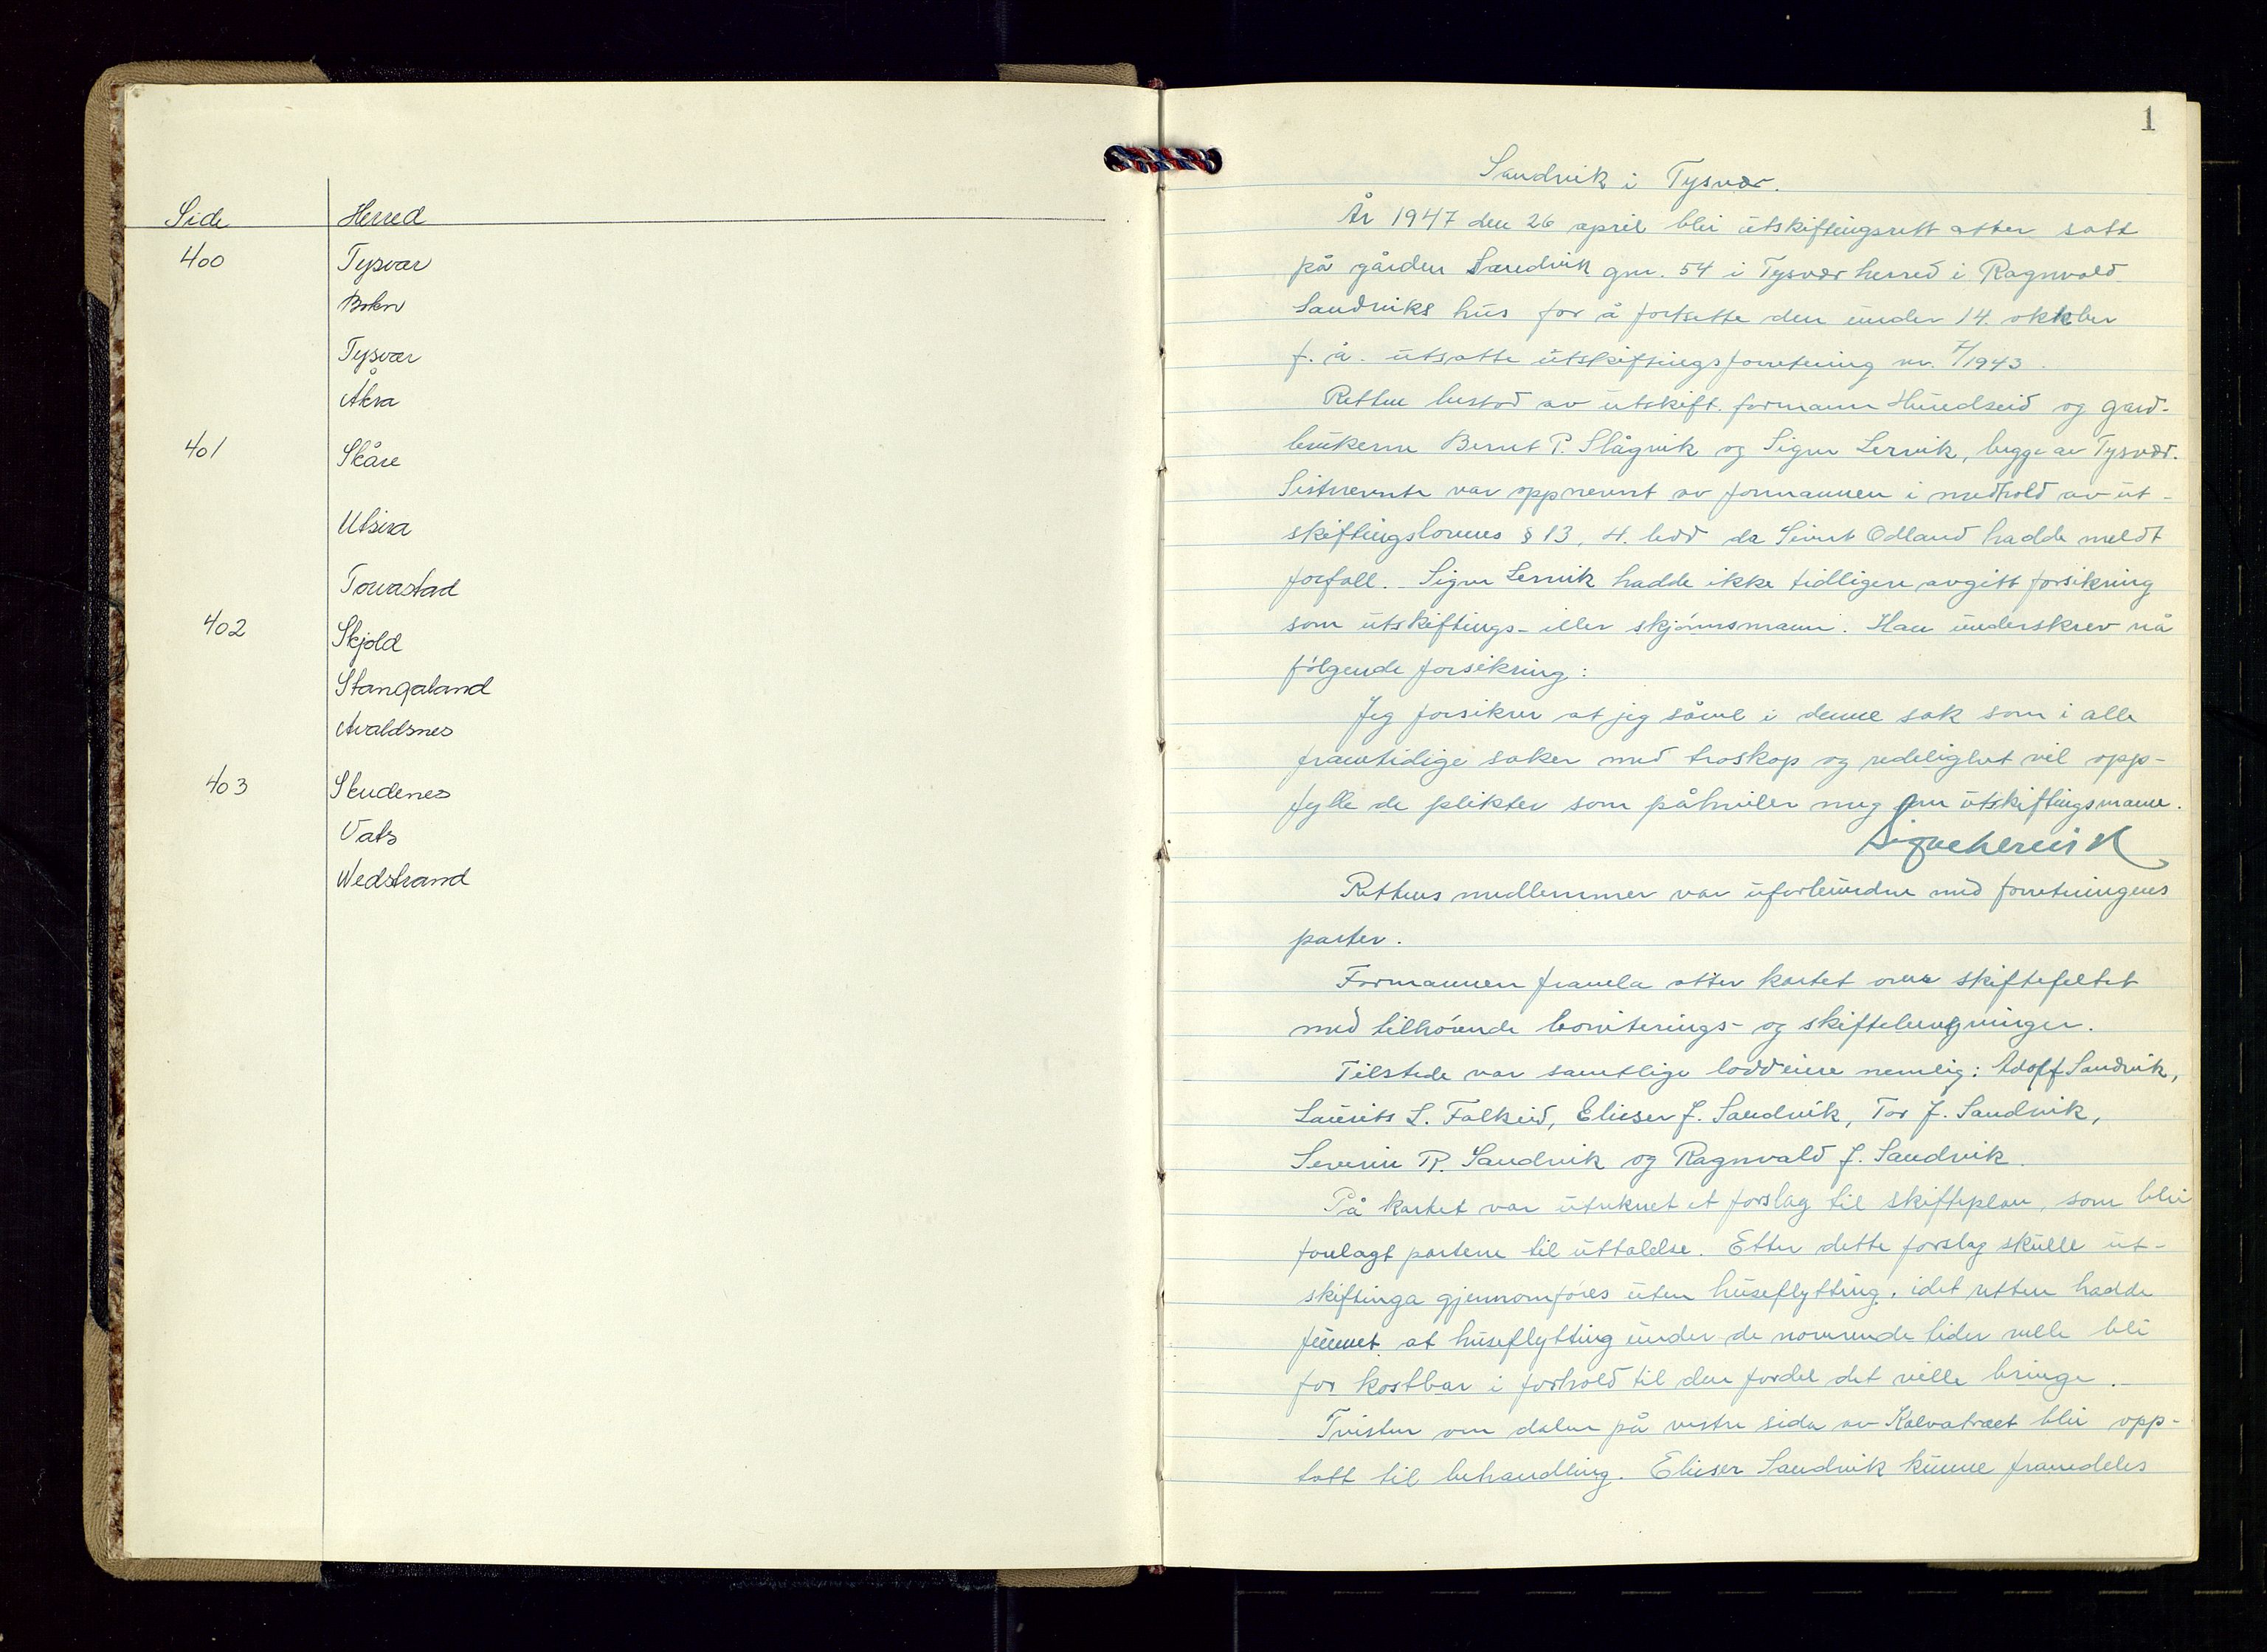 Side Herred
400 Tysvær
Bokn
Tysvær
Åkra
401 Skåre
Utsira
Torvastad
402 Skjold
Stangaland
Avaldsnes
403 Skudenes
Vats
Vedstrand
1
Sandvik i Tysvær.
År 1947 den 26 april blei utskiftingsrett atter satt
på gården Sandvik gnr. 54 i Tysvær herred i Ragnvald
Sandviks hus for å fortsette den under 14. oktober
f. å. utsatte utskiftingsforretning nr. 7/1943.
Retten bestod av utskift. formann Hundseid og gard-
brukerne Bernt P. Slågvik og Signe Lervik, begge av Tysvær.
Sistnevnte var oppnevnt av formannen i medhold av ut-
skiftingslovens § 13, 4. ledd da Sivert Odland hadde meldt
forfall. Signe Lervik hadde ikke tidligere avgitt forsikring
som utskiftings- eller skjønnsmann. Han underskrev nå
følgende forsikring:
Jeg forsikrer at jeg såvel i denne sak som i alle
framtidige saker med troskap og redelighet vil opp-
fylle de plikter som påhviler meg som utskiftingsmann.
Signe Lervik
Rettens medlemmer var uforbundne med forretningens
parter.
Formannen framla atter kartet over skiftefeltet
med tilhørende boniterings- og skifteberegninger.
Tilstede var samtlige loddeiere nemlig: Adolf Sandvik,
Laurits L. Falkeid, Elieser J. Sandvik, Tor J. Sandvik,
Severin R. Sandvik og Ragnvald J. Sandvik.
På kartet var utreknet et forslag til skifteplan, som blei
forelagt partene til uttalelse. Etter dette forslag skulle ut-
skiftinga gjennomføres uten huseflytting, idet retten hadde
funnet at huseflytting under de nåværende tider ville bli
for kostbar i forhold til den fordel det ville bringe.
Tvisten om dalen på vestre sida av Kalvatræet blei opp-
tatt til behandling. Elieser Sandvik kunne framdeles